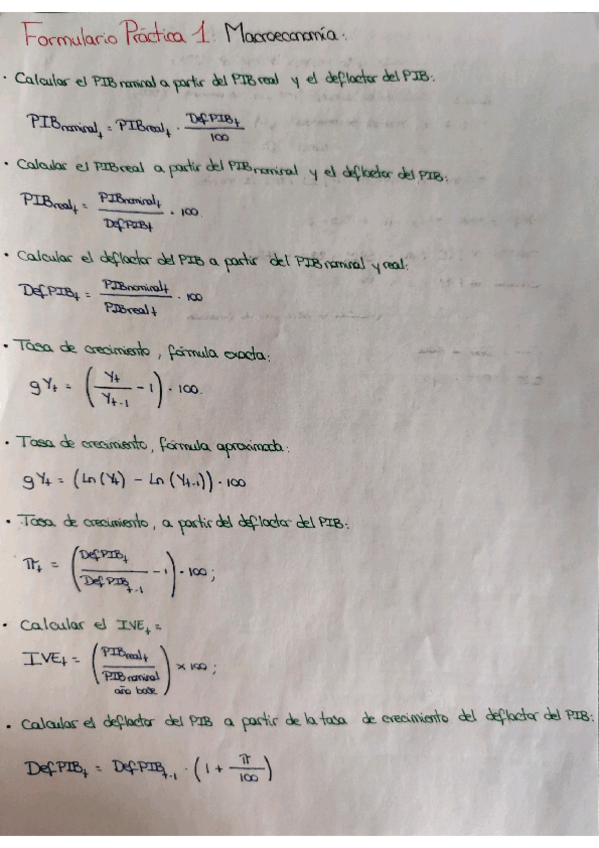 Formulario Práctica 1: Macroeconomía:
· Calcular el PIB nominal a partir del PIB real y el deflactor del PIB:
PIBnominal_t = PIBreal_t · Def.PIB_t / 100
· Calcular el PIB real a partir del PIB nominal y el deflactor del PIB:
PIBreal_t = PIBnominal_t / Def PIB_t · 100
· Calcular el deflactor del PIB a partir del PIB nominal y real:
Def.PIB_t = PIBnominal_t / PIBreal_t · 100
· Tasa de crecimiento, fórmula exacta:
gY_t = (Y_t / Y_t-1 - 1) · 100.
· Tasa de crecimiento, fórmula aproximada:
gY_t = (Ln(Y_t) - Ln(Y_t-1)) · 100
· Tasa de crecimiento, a partir del deflactor del PIB:
π_t = (Def PIB_t / Def PIB_t-1 - 1) · 100;
· Calcular el IVE_t =
IVE_t = (PIBreal_t / PIB nominal año base) × 100;
· Calcular el deflactor del PIB a partir de la tasa de crecimiento del deflactor del PIB:
Def PIB_t = Def PIB_t-1 · (1 + π / 100)